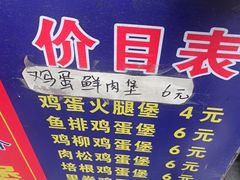 价目表
鸡蛋鲜肉堡 6元
鸡蛋火腿堡 4元
鱼排鸡蛋堡 6元
鸡柳鸡蛋堡 6元
肉松鸡蛋堡 6元
培根鸡蛋堡 6元